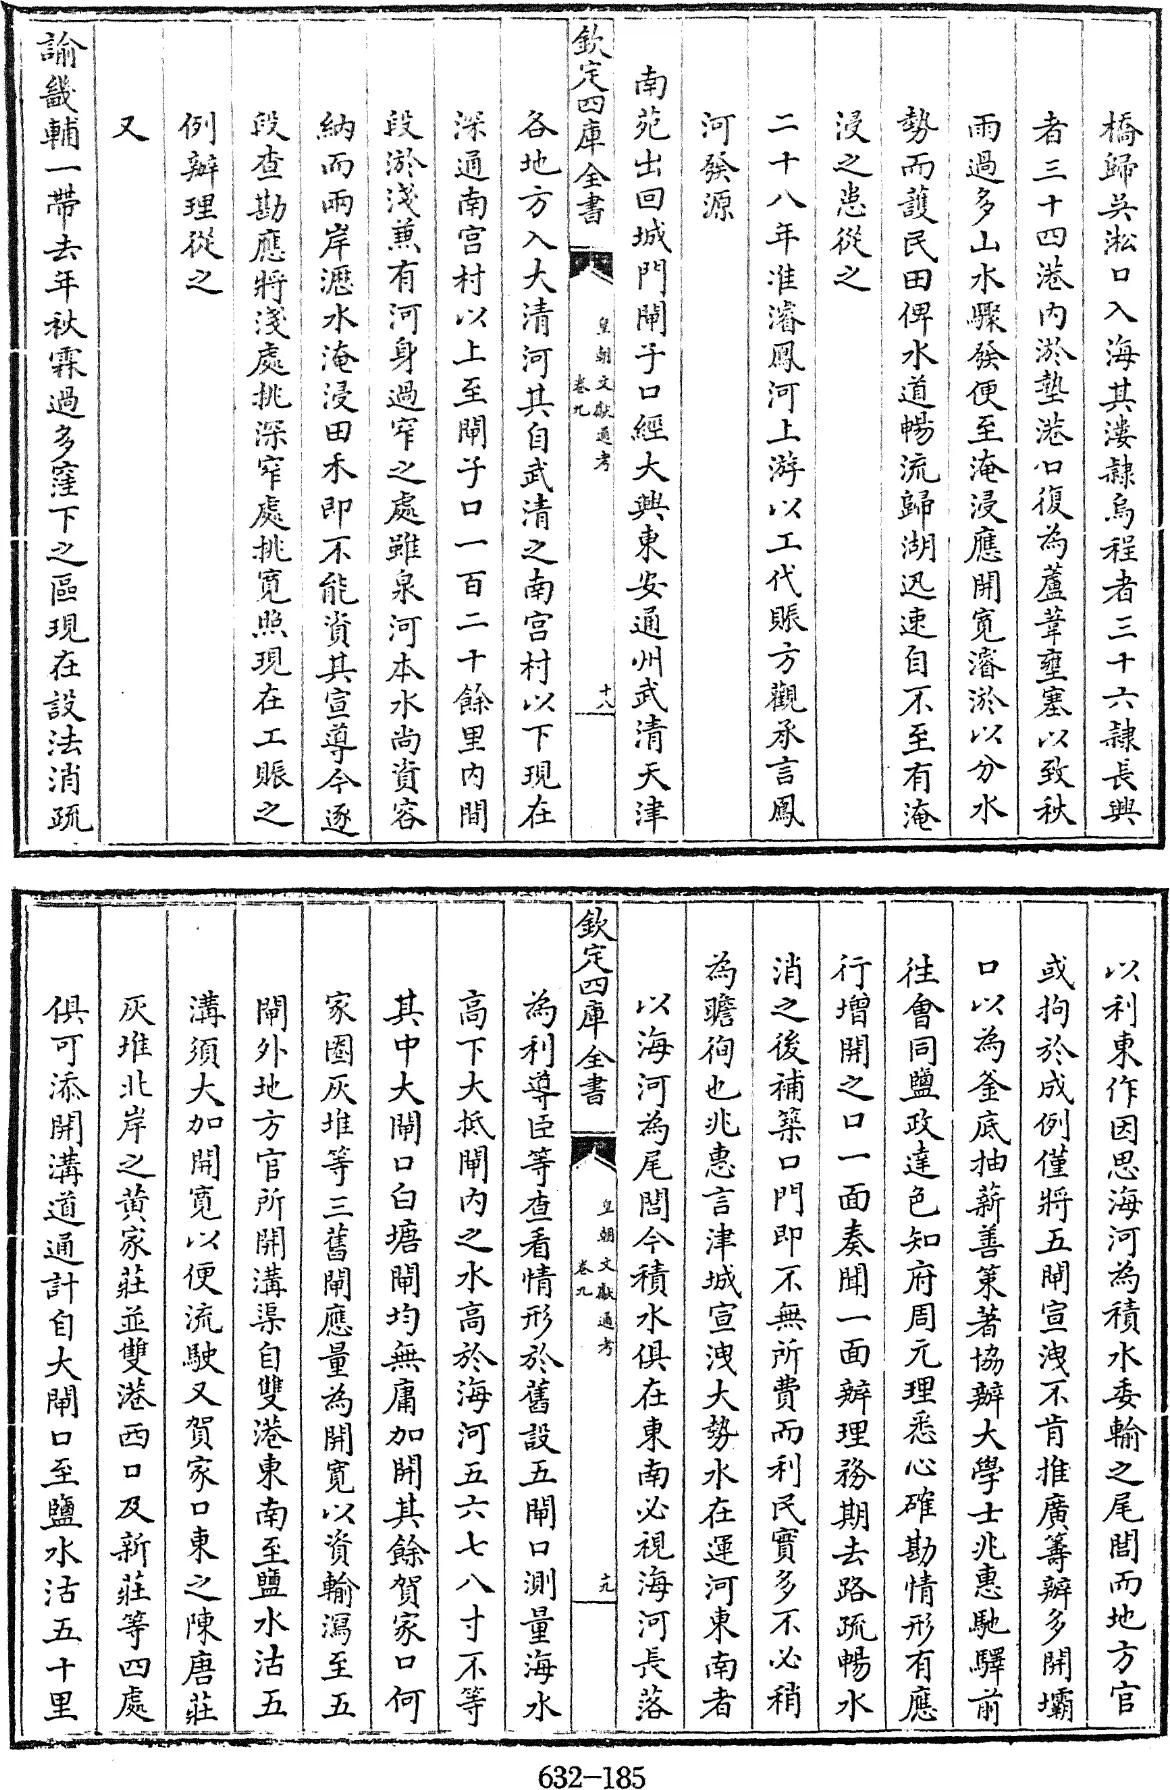 橋歸吳淞口入海其漊隸烏程者三十六隸長興
者三十四港内淤墊港口復為蘆葦壅塞以致秋
雨過多山水驟發便至淹浸應開寛濬淤以分水
勢而護民田俾水道暢流歸湖迅速自不至有淹
浸之患從之
二十八年准濬鳳河上游以工代賑方觀承言鳳
河發源
南苑出回城門閘子口經大興東安通州武清天津
欽定四庫全書
皇朝文獻通考
卷九
十八
各地方入大清河其自武清之南宫村以下現在
深通南宫村以上至閘子口一百二十餘里内間
段淤淺兼有河身過窄之處雖泉河本水尚資容
納而兩岸瀝水淹浸田禾即不能資其宣導今逐
段查勘應將淺處挑深窄處挑寛照現在工賑之
例辦理從之
又
諭畿輔一帶去年秋霖過多窪下之區現在設法消疏
以利東作因思海河為積水委輸之尾閭而地方官
或拘於成例僅將五閘宣洩不肯推廣籌辦多開壩
口以為釜底抽薪善策著協辦大學士兆惠馳驛前
往會同鹽政達色知府周元理悉心確勘情形有應
行增開之口一面奏聞一面辦理務期去路疏暢水
消之後補築口門即不無所費而利民實多不必稍
為瞻徇也兆惠言津城宣洩大勢水在運河東南者
以海河為尾閭今積水俱在東南必視海河長落
欽定四庫全書
皇朝文獻通考
卷九
十九
為利導臣等查看情形於舊設五閘口測量海水
高下大抵閘内之水高於海河五六七八寸不等
其中大閘口白塘閘均無庸加開其餘賀家口何
家圈灰堆等三舊閘應量為開寛以資輸瀉至五
閘外地方官所開溝渠自雙港東南至鹽水沽五
溝須大加開寛以便流駛又賀家口東之陳唐莊
灰堆北岸之黄家莊並雙港西口及新莊等四處
俱可添開溝道通計自大閘口至鹽水沽五十里
632-185